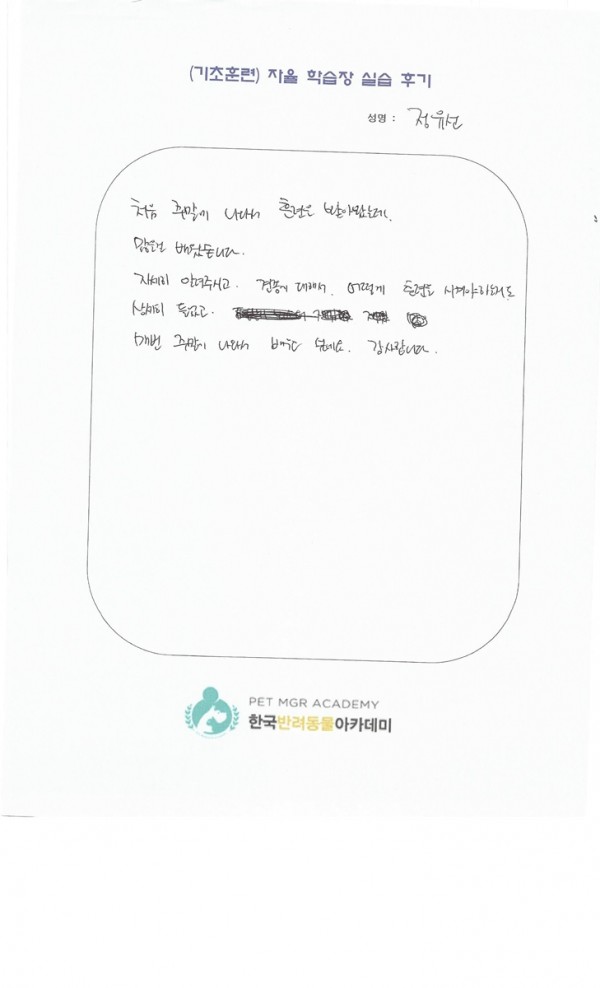 (기초훈련) 자율 학습장 실습 후기
성명 : 정유선
처음 주말에 나와서 훈련을 받아봤는데.
많은걸 배웠습니다.
자세히 알려주시고. 견종에 대해서. 어떻게 훈련을 시켜야하는지도
상세히 듣고.
매번 주말에 나와서 배우고 싶네요. 감사합니다.
PET MGR ACADEMY
한국반려동물아카데미